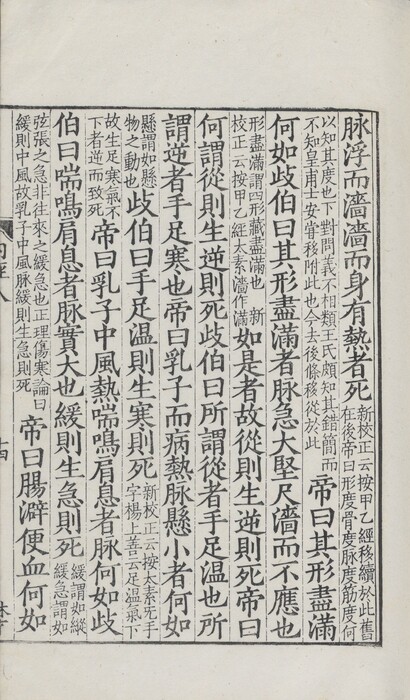 脉浮而濇濇而身有熱者死新校正云按甲乙經移續於此舊在後帝曰形度骨度脉度筋度何
以知其度也下對問義不相類王氏頗知其錯簡而不知皇甫士安嘗移附此也今去後條移從於此帝曰其形盡滿
何如歧伯曰其形盡滿者脉急大堅尺濇而不應也
形盡滿謂四形藏盡滿也 新校正云按甲乙經太素濇作滿如是者故從則生逆則死帝曰
何謂從則生逆則死歧伯曰所謂從者手足温也所
謂逆者手足寒也帝曰乳子而病熱脉懸小者何如
懸謂如懸物之動也歧伯曰手足温則生寒則死新校正云按太素无手字楊上善云足温氣下
故生足寒氣不下者逆而致死帝曰乳子中風熱喘鳴肩息者脉何如歧
伯曰喘鳴肩息者脉實大也緩則生急則死緩謂如縱緩急謂如
弦張之急非往來之緩急也正理傷寒論曰緩則中風故乳子中風脉緩則生急則死帝曰腸澼便血何如